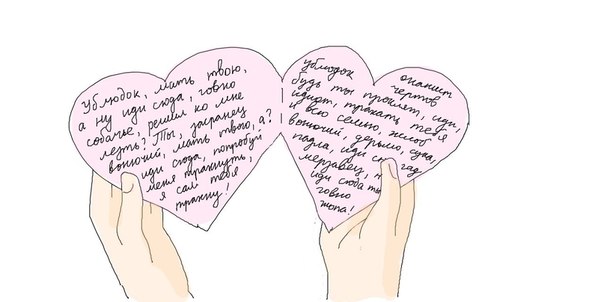 Ублюдок, мать твою,
а ну иди сюда, говно
собачье, решил ко мне
лезть? Ты, засранец
вонючий, мать твою, а?
иди сюда, попробуй
меня трахнуть,
я сам тебя
трахну!
ублюдок онанист
чертов
будь ты проклят, иди,
идиот, трахать тебя
и всю семью, жлоб
вонючий, дерьмо, сука,
падла, иди гад
мерзавец,
иди сюда ты
говно
жопа!